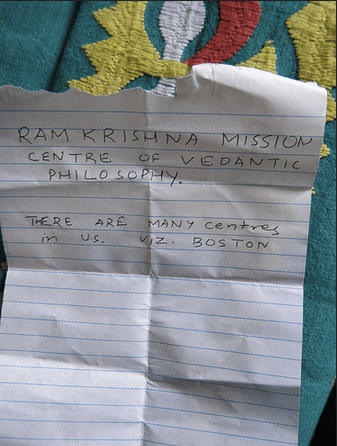 RAM KRISHNA MISSION
CENTRE OF VEDANTIC
PHILOSOPHY.
THERE ARE MANY centres
in U.S. VIZ. BOSTON